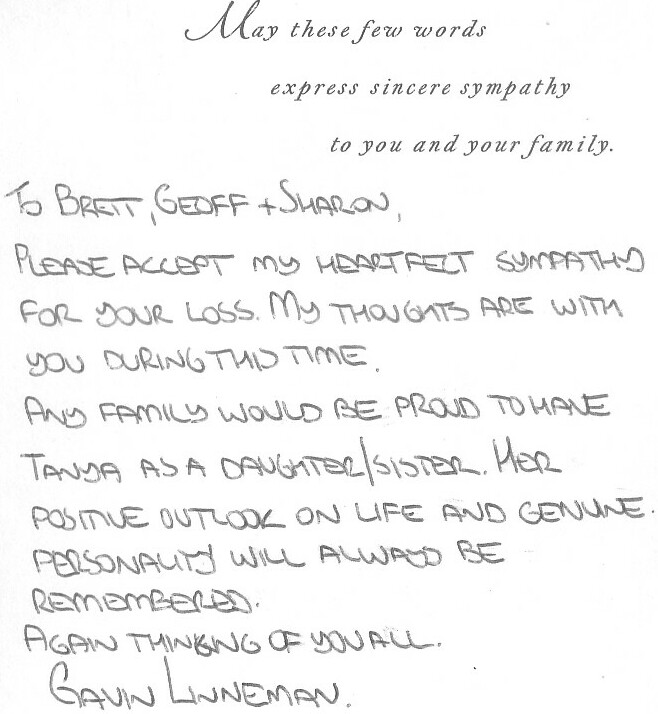 May these few words
express sincere sympathy
to you and your family.
To BRETT, GEOFF + SHARON,
PLEASE ACCEPT MY HEARTFELT SYMPATHY
FOR YOUR LOSS. MY THOUGHTS ARE WITH
YOU DURING THIS TIME.
ANY FAMILY WOULD BE PROUD TO HAVE
TANYA AS A DAUGHTER/SISTER. HER
POSITIVE OUTLOOK ON LIFE AND GENUINE.
PERSONALITY WILL ALWAYS BE
REMEMBERED.
AGAIN THINKING OF YOU ALL.
GAVIN LINNEMAN.